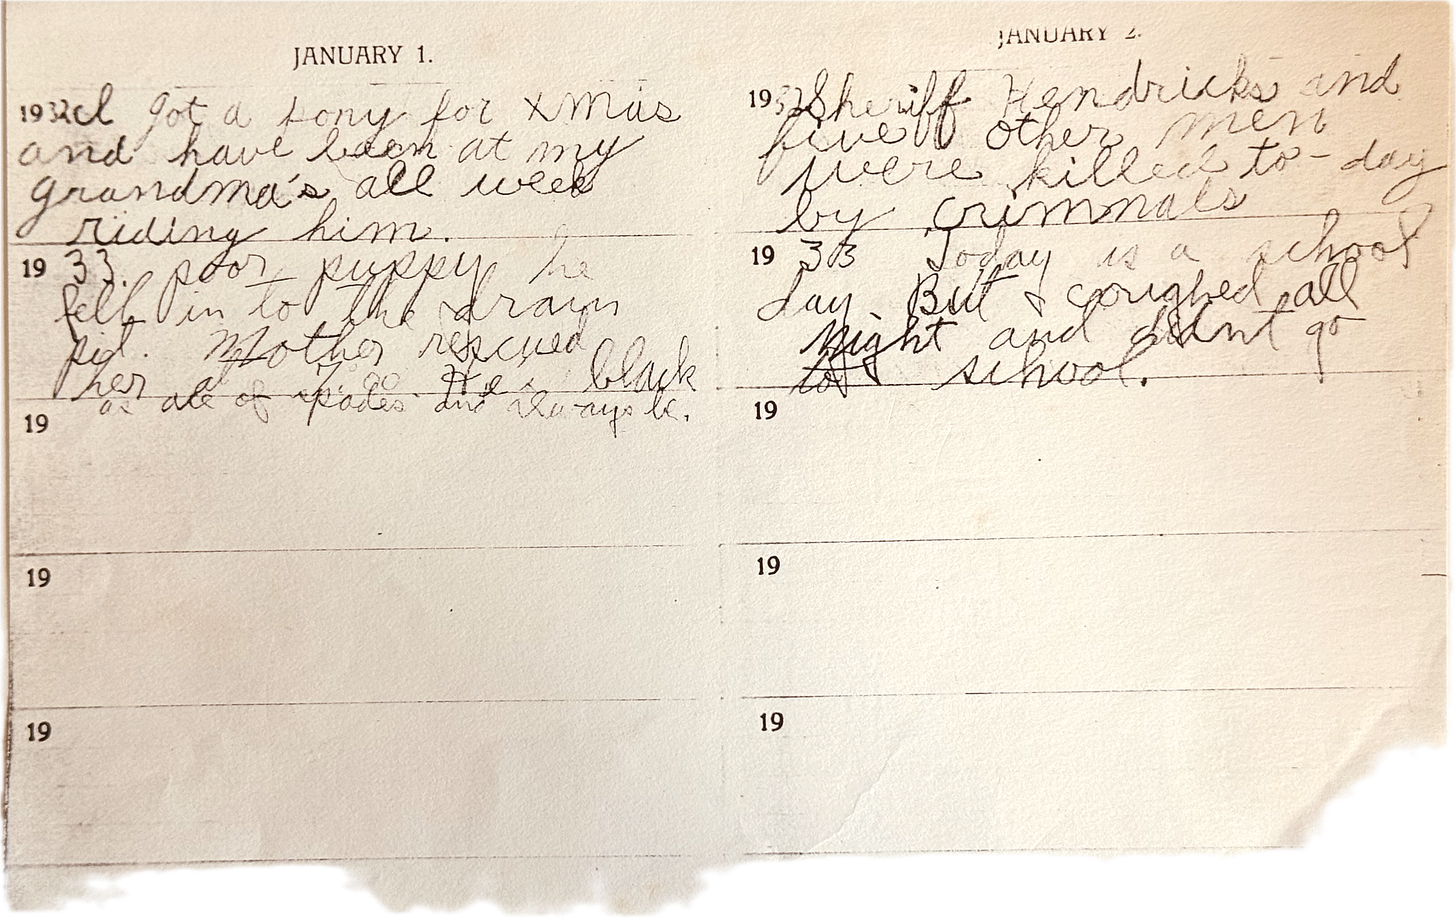 JANUARY 1.
1932 I got a pony for Xmas
and have been at my
grandma's all week
riding him.
19 33. poor puppy he
fell in to the drain
pit. Mother rescued
her at 7:00 He is black
as ace of spades and always be.
19
19
19
JANUARY 2.
1932 Sheriff Hendricks and
five other men
were killed to-day
by crimnals
19 33 Today is a school
day But I coughed all
night and didnt go
to school.
19
19
19